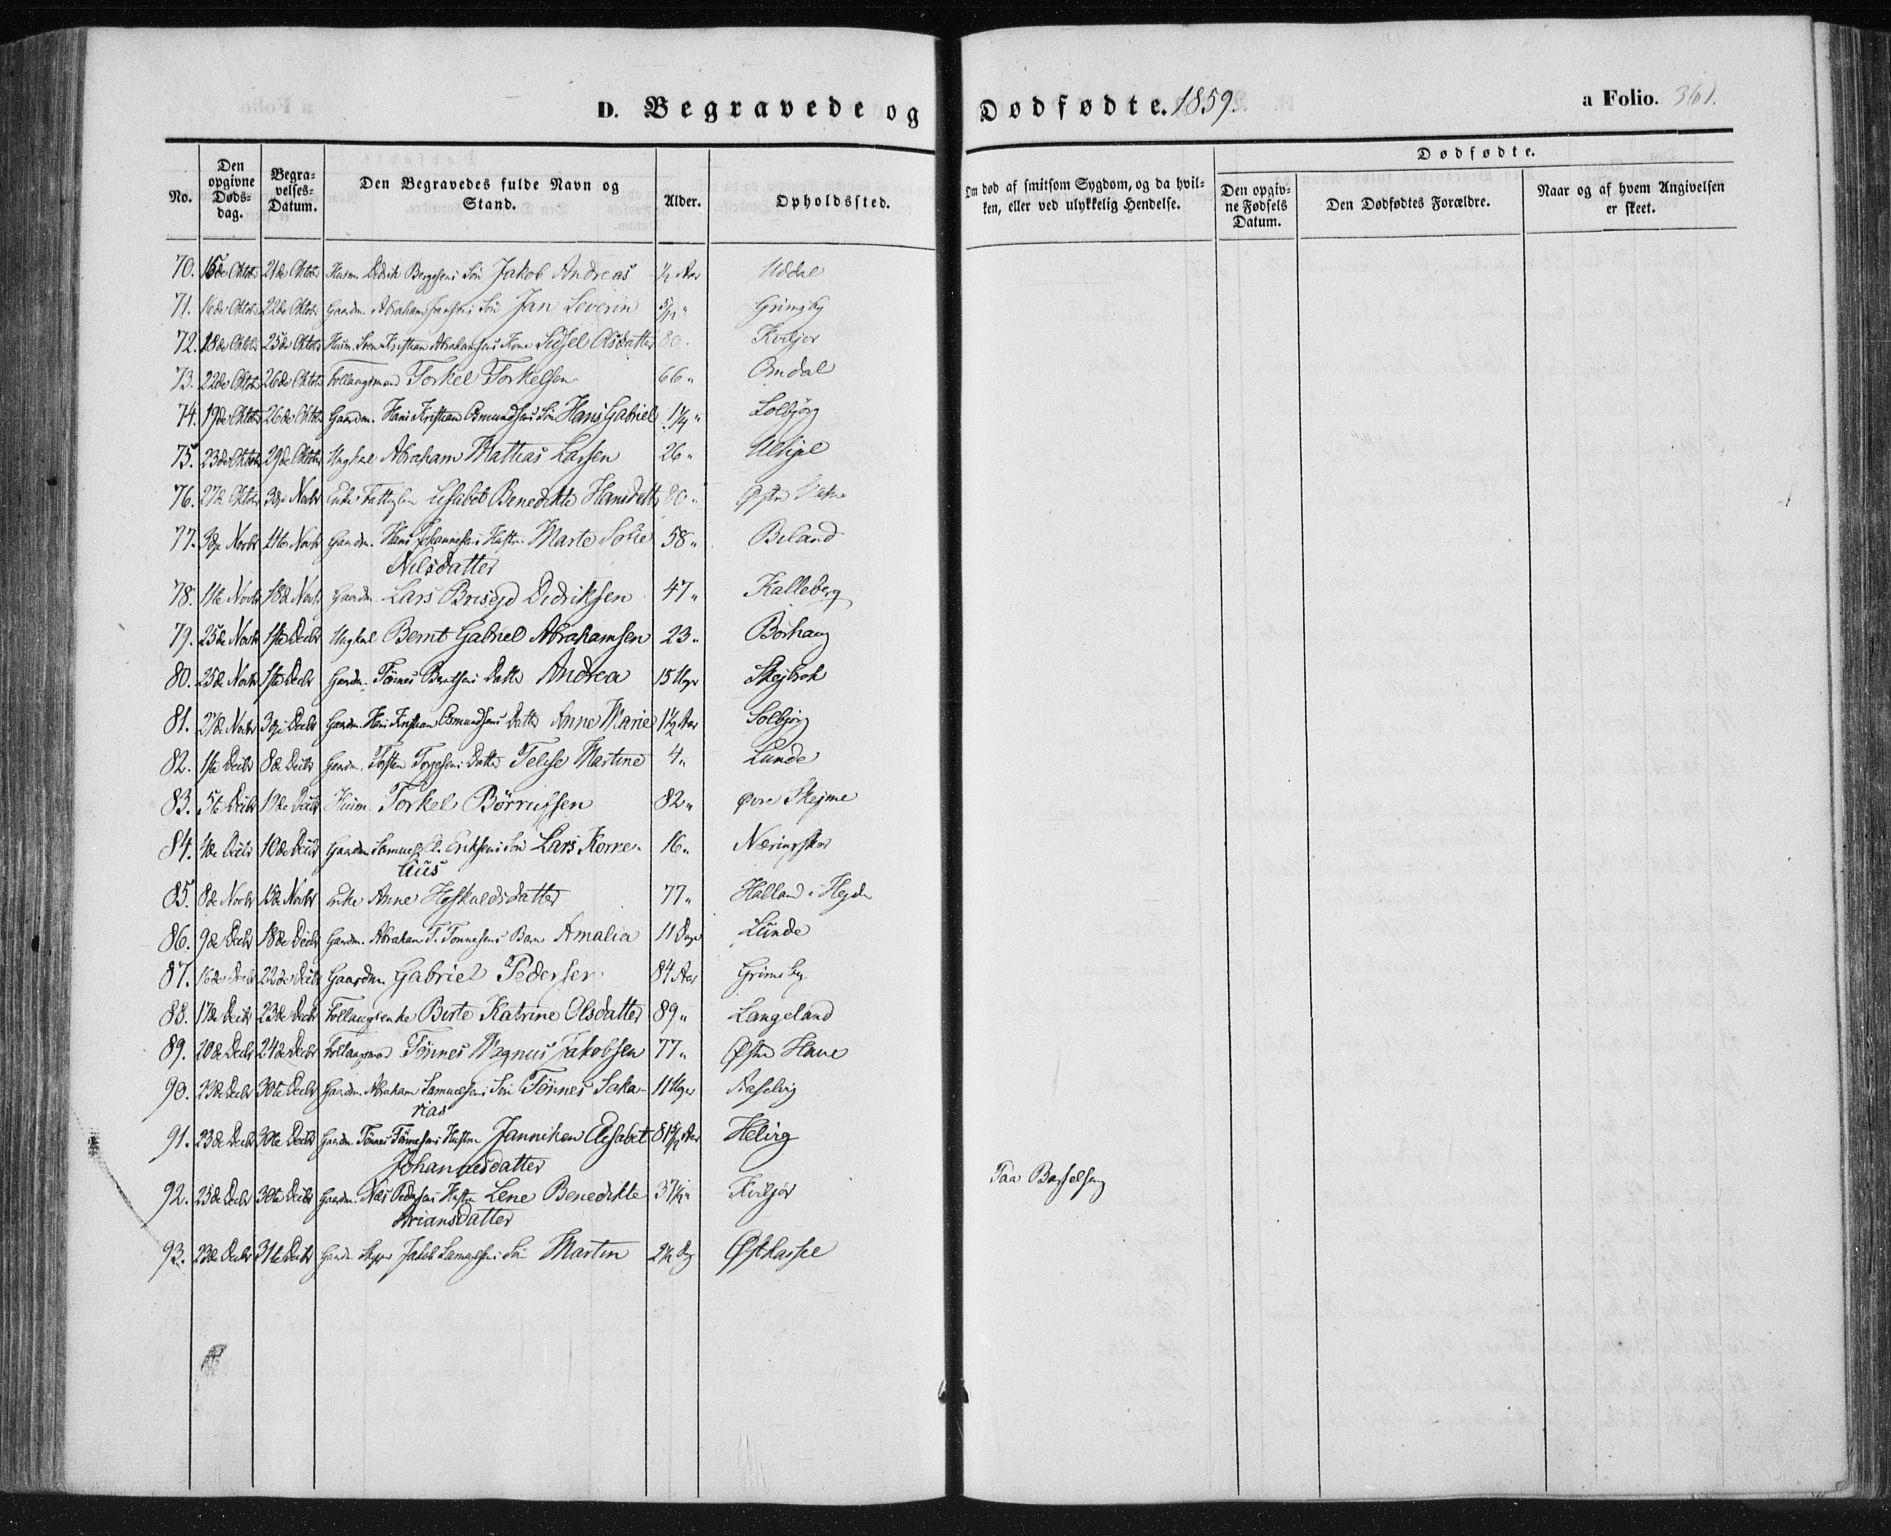 D. Begravede og Dødfødte. 1859.
a Folio. 361.
No.
Den opgivne Døds-dag.
Begra-velses-Datum.
Den Begravedes fulde Navn og Stand.
Alder.
Opholdssted.
Om død af smitsom Sygdom, og da hvil-ken, eller ved ulykkelig Hendelse.
Dødfødte.
Den opgiv-ne Fødsels Datum.
Den Dødfødtes Forældre.
Naar og af hvem Angivelsen er skeet.
70. 15de Oktbr 21de Oktbr Husm. Didrik Børgesens Søn Jakob Andreas ½ Aar Uddal
71. 16de Oktbr 22de Oktbr Gaardm. Abraham Jansens Søn Jan Severin 5/12 " Grimsby
72. 18de Oktbr 25de Oktbr Husm. Kristian Abrahamsens Kone Sidsel Olsdatter 80. Kviljor
73. 22de Oktbr 26de Oktbr Follaugsmand Torkel Torkelsen 66 " Omdal
74. 19de Oktbr 26de Oktbr Gaardm. Hans Kristian Osmundsens Søn Hans Gabriel 1¼ " Solbjørg
75. 23de Oktbr 29de Oktbr Ungkal Abraham Mathias Larsen 26 "
76. 27de Oktbr 3die Novbr Enke Elisabet Benedikte Hansdatter 80 " Østre
77. 3die Novbr 11te Novbr Gaardm. Hans Johannesens Hustru Marte Sofie 58 " Beland
Nilsdatter
78. 11te Novbr 18de Novbr Gaardm. Lars Brisejd Didriksen 47 " Kalleberg
79. 25de Novbr 1ste Decbr Ungkal Bernt Gabriel Abrahamsen 23 " Borhaug
80. 25de Novbr 1ste Decbr Gaardm. Tønnes Berntsens Datter Andrea 15 Uger Skejbrok
81. 27de Novbr 3die Decbr Gaardm. Hans Kristian Osmundsens Datter Anne Marie 1½ Aar Solbjørg
82. 1ste Decbr 8de Decbr Gaardm. Datter Telise Martine 4 " Lunde
83. 5te Decbr 10de Decbr Husm. Torkel Børrufsen 82 " Øvre Skejme
84. 4de Decbr 10de Decbr Gaardm. Samuel Eriksens Søn Lars Korne- 16 "
lius
85. 8de Novbr 15de Novbr Enke Anne Høskuldsdatter 77 " Halland i
86. 9de Decbr 18de Decbr Gaardm. Abraham T. Tønnesens Barn Amalia 11 Dage Lunde
87. 16de Decbr 22de Decbr Gaardm. Gabriel Pedersen 84 Aar Grimsby
88. 17de Decbr 23de Decbr Follaugsenke Birte Katrine Olsdatter 89 " Langeland
89. 20de Decbr 24de Decbr Follaugsmand Tønnes Magnus Jakobsen 77 " Østre Haue
90. 23de Decbr 30te Decbr Gaardm. Abraham Samuelsens Søn Tønnes Saka- 11 Uger
rias
91. 23de Decbr 30te Decbr Gaardm. Tønnes Tønnesens Hustru Janniken Elisabet Aar Helvig
Johannesdatter
92. 25de Decbr 30te Decbr Gaardm. Nils Pedersens Hustru Lene Benedikte 37½ " Kviljor Paa Barselseng
Ariansdatter
93. 23de Decbr 31te Decbr Gaardm. Jakob Samuelsens Søn Martin 2½ Dag Østhassel